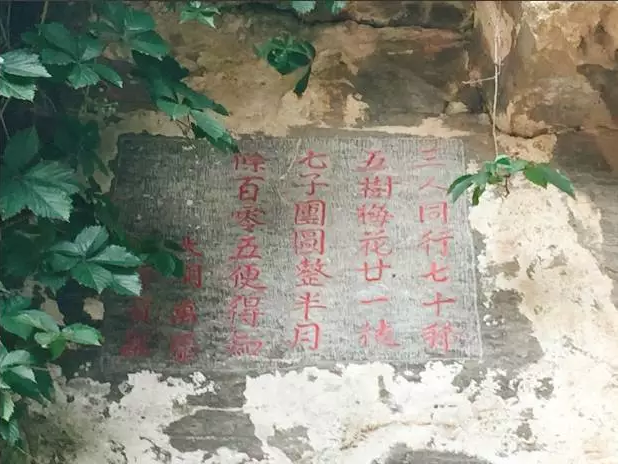 三人同行七十稀
五樹梅花廿一枝
七子團圓整半月
除百零五便得知